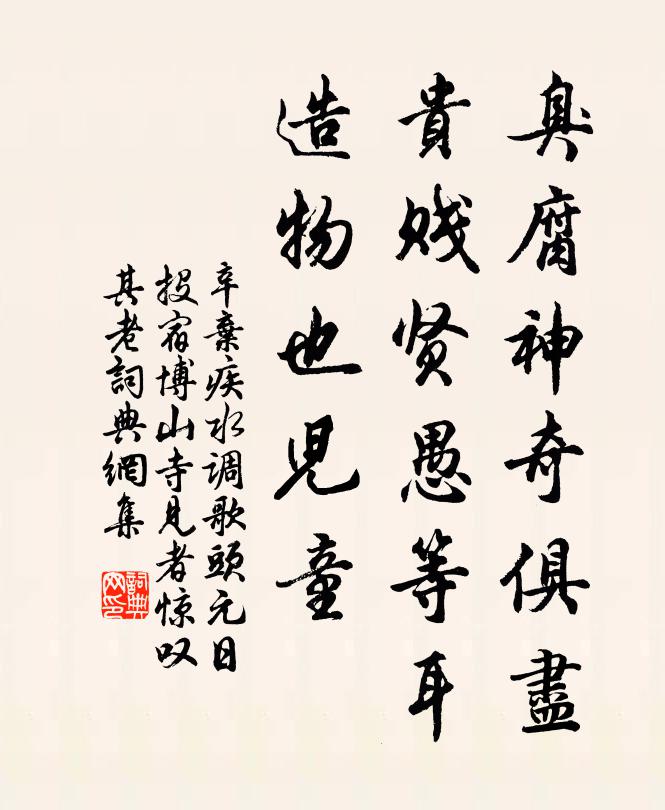 臭腐神奇俱盡
貴賤贤愚等耳
造物也兒童
辛棄疾水调歌頭元日
投宿博山寺见者惊叹
其老詞典網集
詞典网印